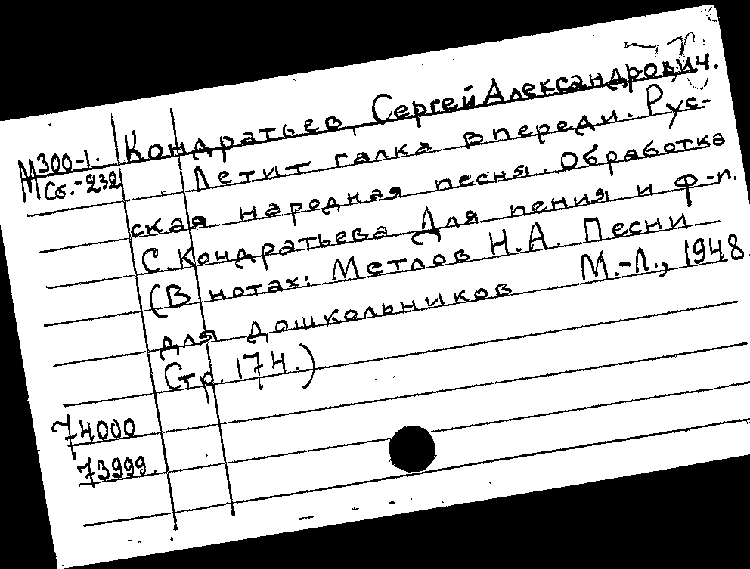 Кондратьев, Сергей Александрович.
М300-1.
Сб.-232
Летит галка впереди. Рус-
ская народная песня. Обработка
С. Кондратьева Для пения и ф-п.
(В нотах: Метлов Н.А. Песни
для дошкольников М.-Л., 1948.
Стр. 174.)
74000
73999.